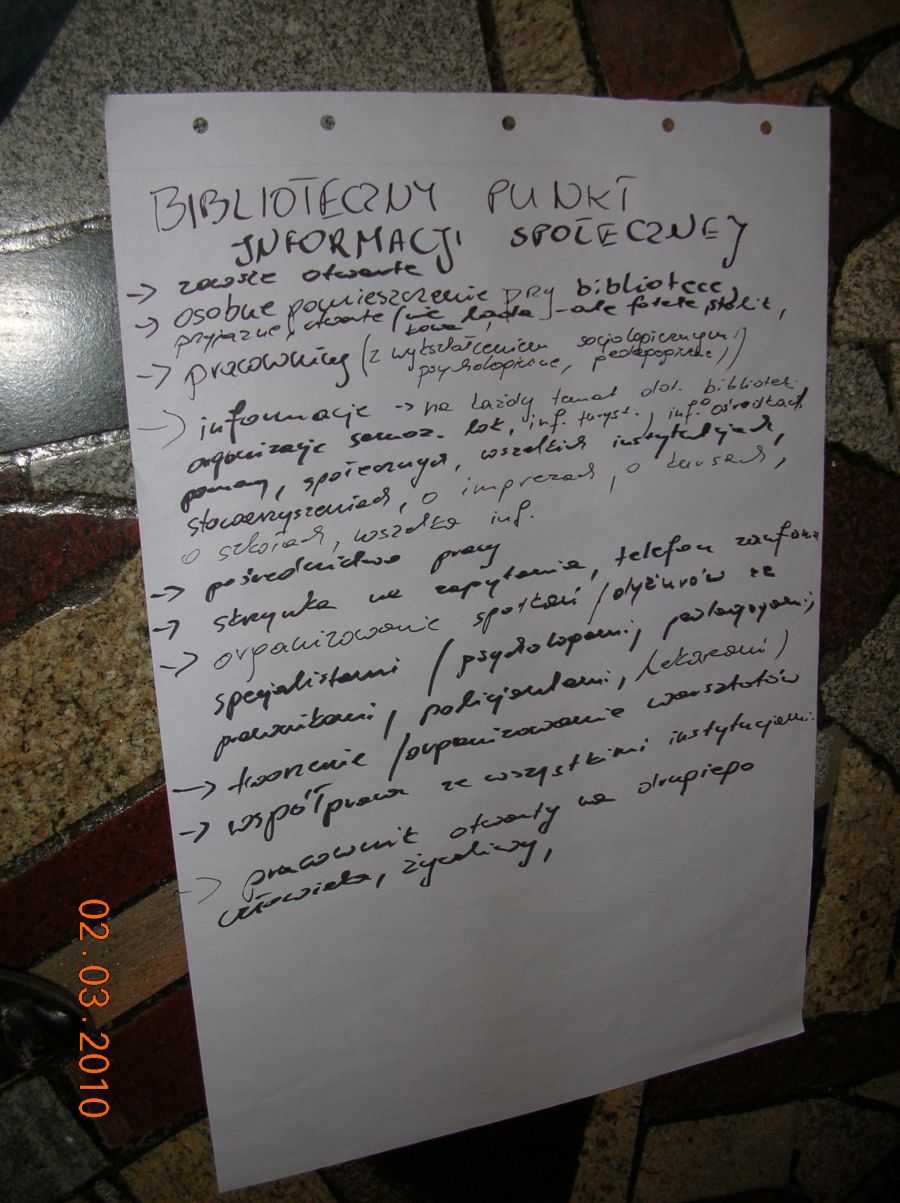 BIBLIOTECZNY PUNKT
INFORMACJI SPOŁECZNEJ
-> zawsze otwarte
-> osobne pomieszczenie przy bibliotece,
przyjazne, otwarte (nie lada - ale fotele, stolik,
towa,
-> pracownicy (z wykształceniem socjologicznym,
psychologiczne, pedagogiczne,)
-> informacje -> na każdy temat dot. bibliotek
organizacje samorz. lok, inf. turyst., inf. o ośrodkach
pomocy, społecznych, wszelkich instytucjach,
stowarzyszeniach, o imprezach, o kursach,
o szkołach, wszelka inf.
-> pośrednictwo pracy
-> skrzynka na zapytania, telefon zaufania
-> organizowanie spotkań / dyżurów ze
specjalistami (psychologami, pedagogami,
prawnikami, policjantami, lekarzami)
-> tworzenie / organizowanie warsztatów
-> współpraca ze wszystkimi instytucjami
-> pracownik otwarty na drugiego
człowieka, życzliwy,
02.03.2010